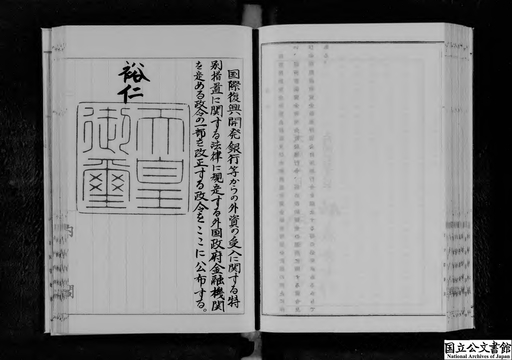 国際復興開発銀行等からの外資の受入に関する特
別措置に関する法律に規定する外国政府金融機関
を定める政令の一部を改正する政令をここに公布する。
裕仁
天皇
御璽
国立公文書館
National Archives of Japan